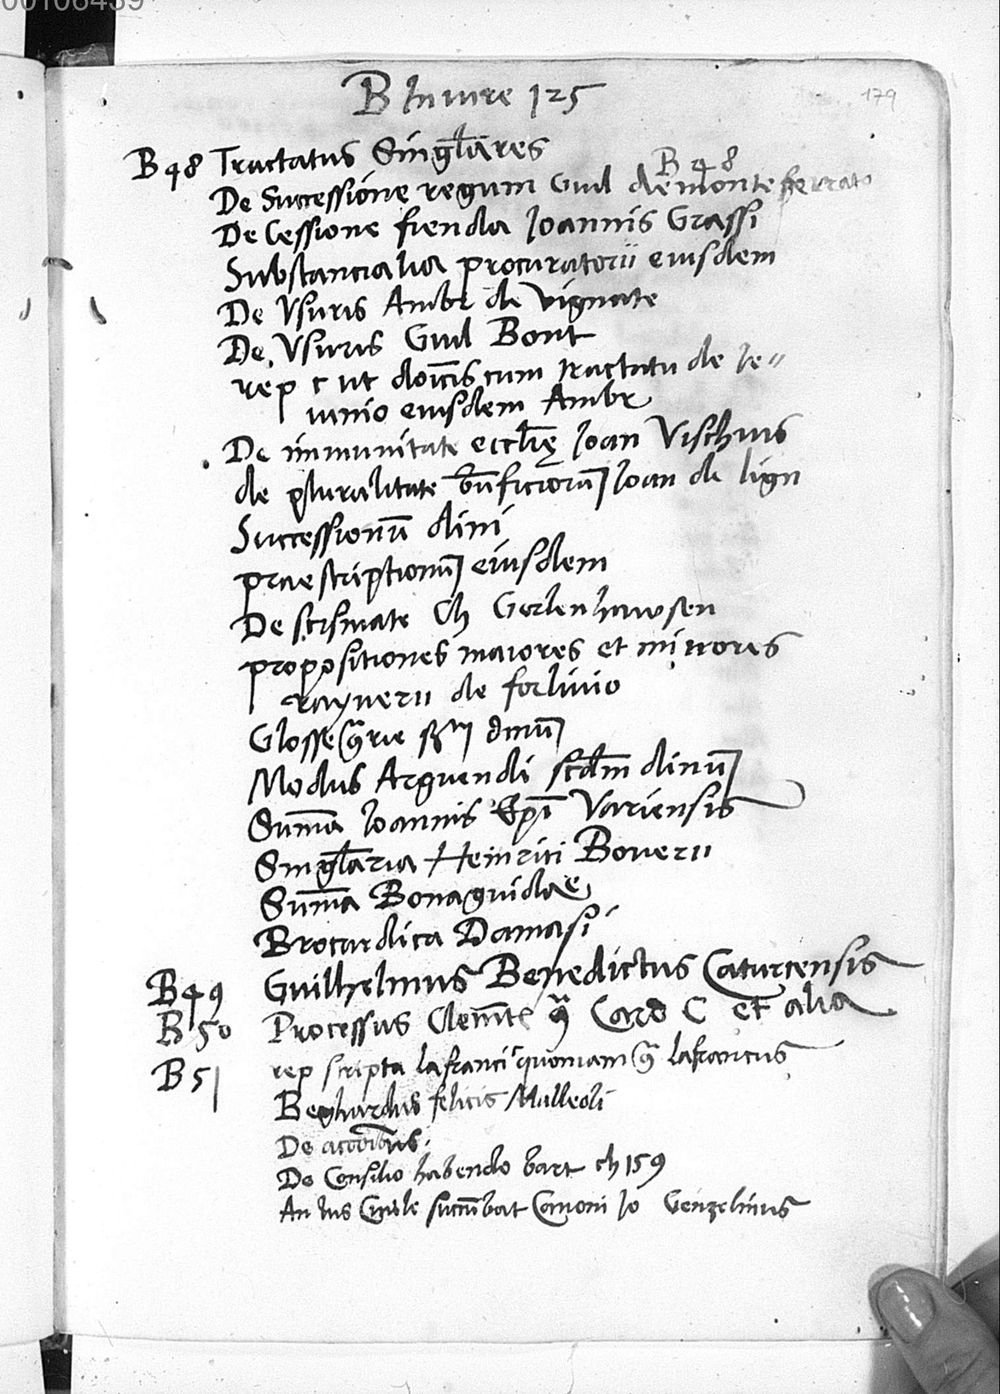 00106439
B In iure 125
179
B48 Tractatus Singlares
B 48
De Successione regum Guil demonteferrato
De Cessione fienda Joannis Grassi
Substancialia procuratorii eiusdem
De Vsuris Ambr de vignate
De Vsuris Guil Bont
rep c ut doīcis cum tractatu de Je〃
iunio eiusdem Ambr
De immunitate eccīę Joan Vischuis
de pluralitate būficiorū Joan de lign
Successionū dini
praescriptionū eiusdem
De scismate Ch Gerlenhawsen
propositiones maiores et minores
raynerii de forliuio
Glosse dinū
Modus Arguendi scdm dinū
Sūma Joannis Epī Variensis
Singlaria Heinrici Bouerii
Sūma Bonaguidae
Brocardica Damasi
B49 Guilhelmus Benedictus Caturcensis
B50 Processus Clemēte Card C et alia
B51 rep scripta lafranci quoniam 9ͣ lafrancus
Beghardus felicis Malleoli
De accōibus.
De Consilio habendo bart ch 159
An Ius Ciuile succūbat Canoni Jo Genzelinus